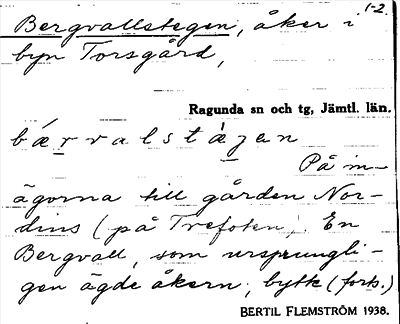 1-2.
Bergvallstegen, åker i
byn Torsgård,
Ragunda sn och tg, Jämtl. län.
bærvalstægen
På in-
ägorna till gården Nor-
dins (på Trefoten). En
Bergvall, som ursprungli-
gen ägde åkern, bytte (forts.)
BERTIL FLEMSTRÖM 1938.